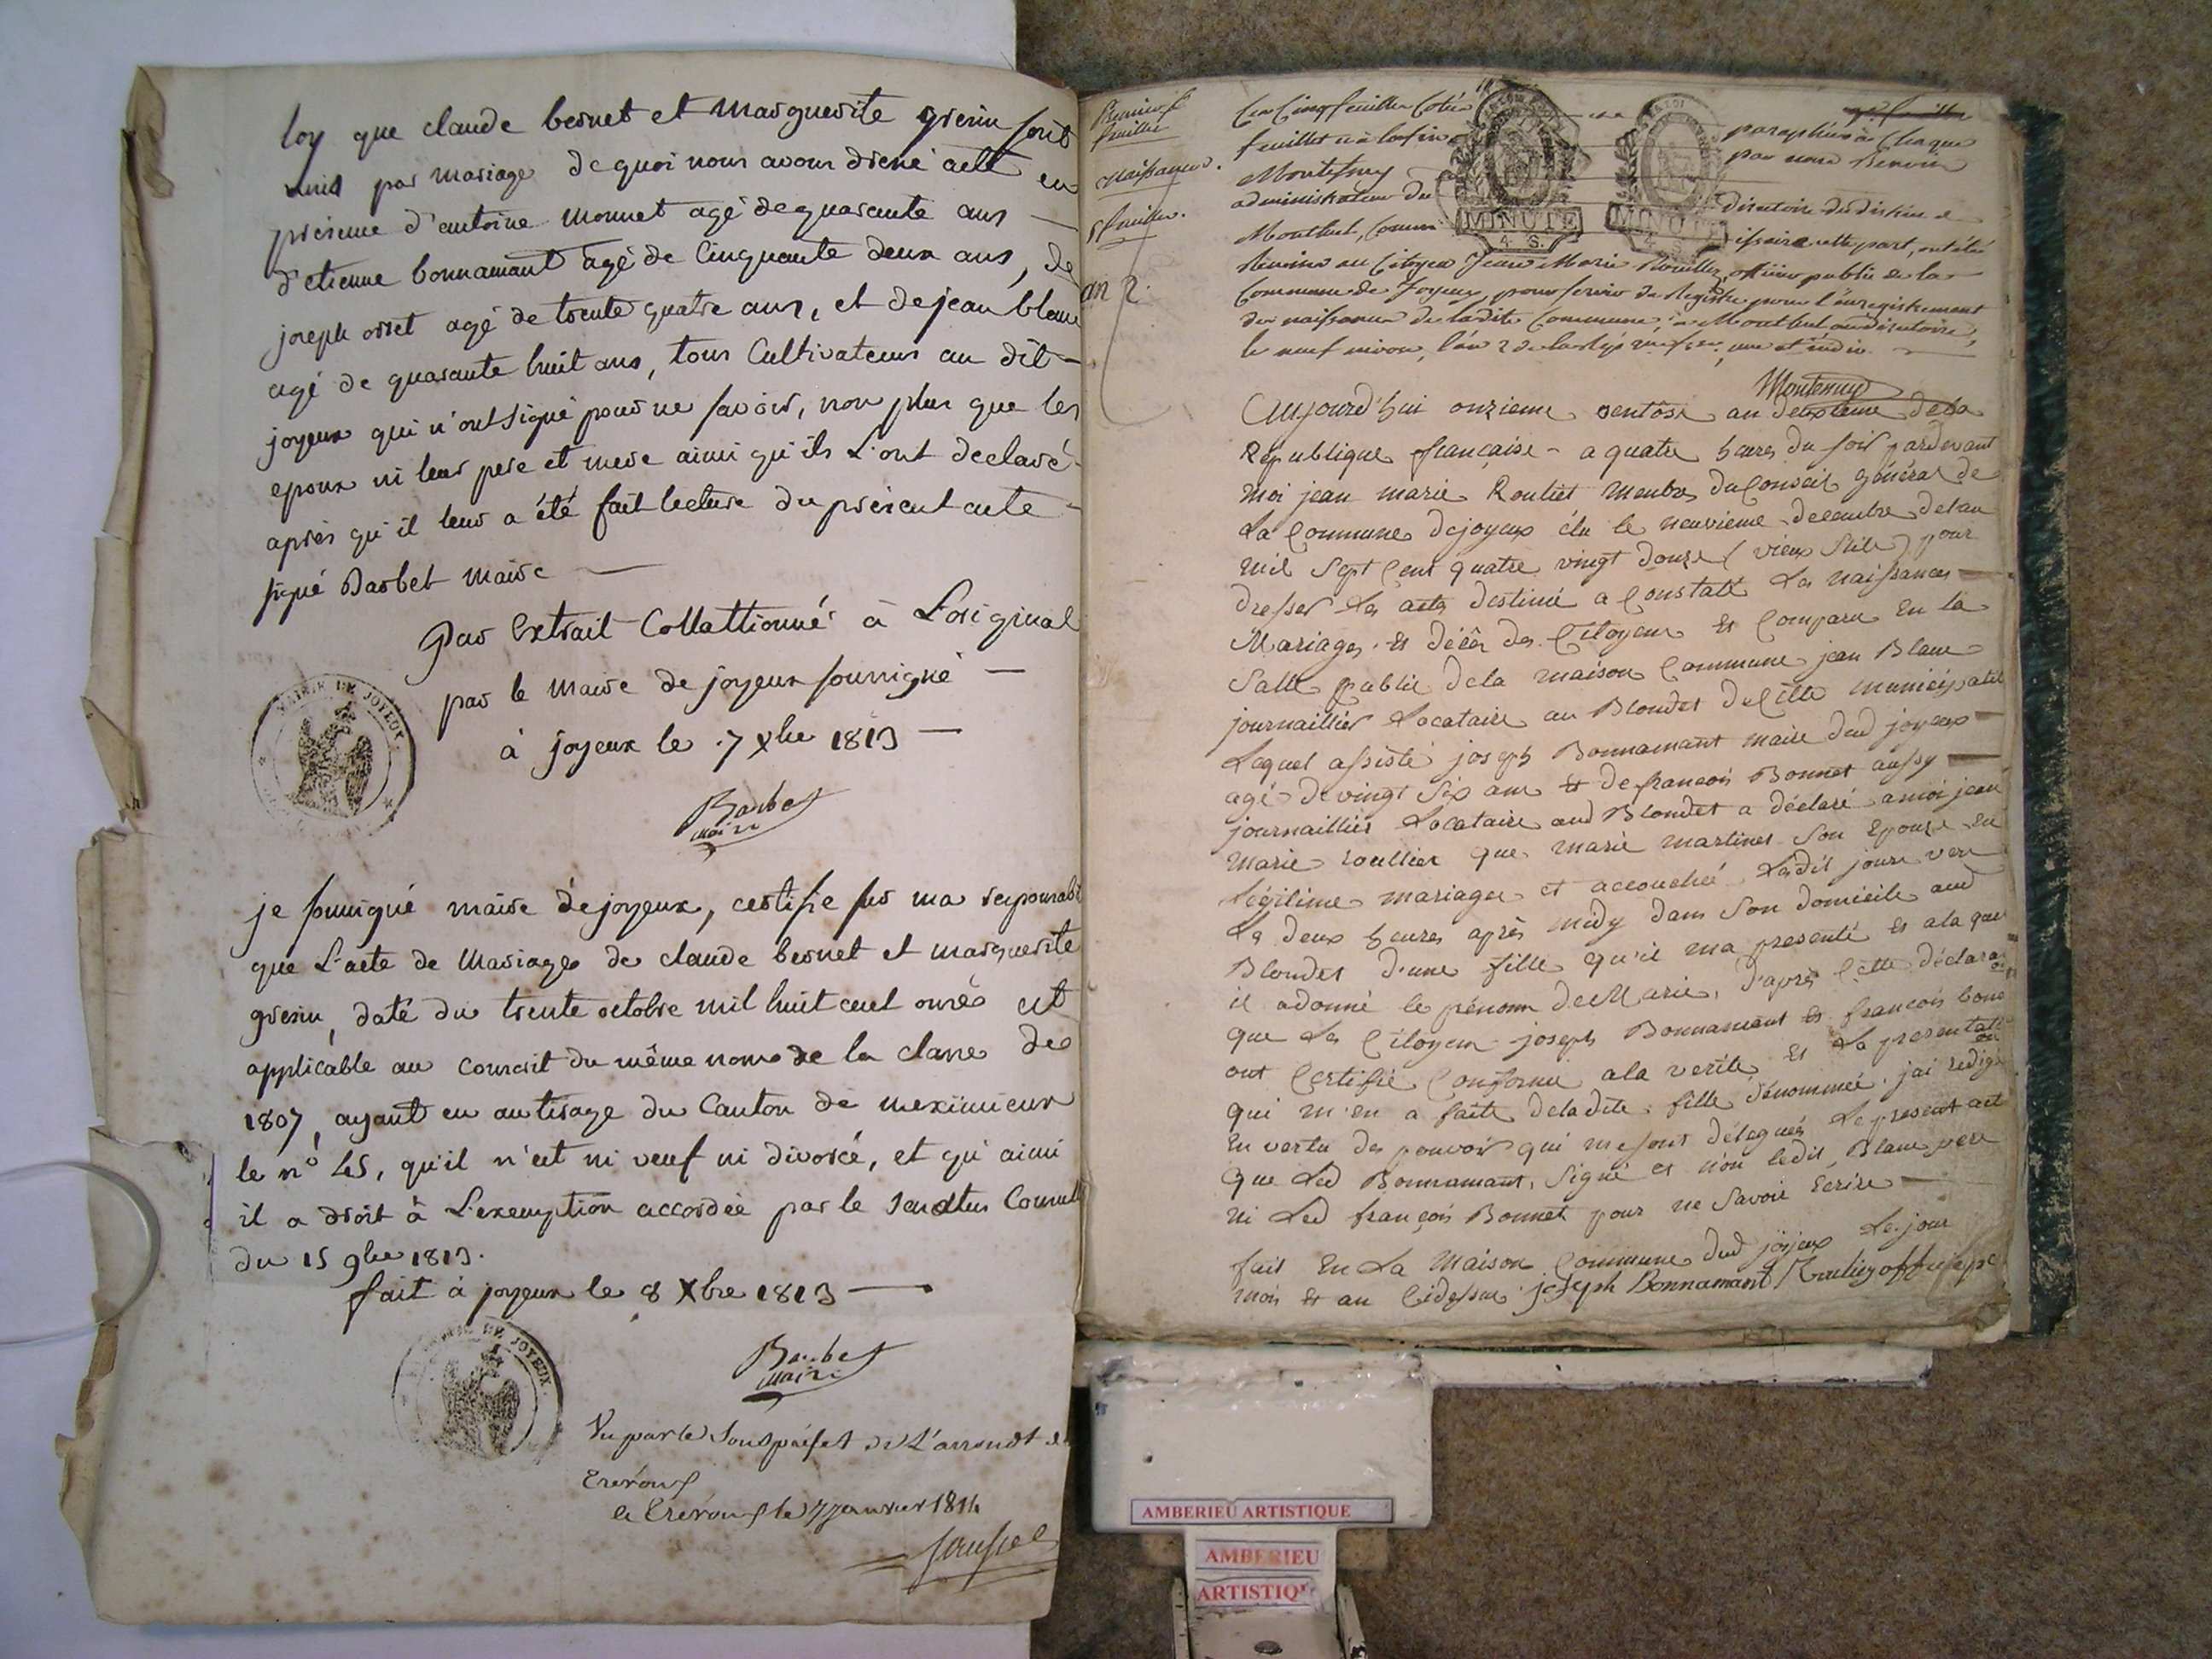 loy que claude bernet et marguerite grenu sont
unis par mariage de quoi nous avons dressé acte en
presence d'antoine monnet agé de quarante ans —
d'etienne bonnamant agé de Cinquante deux ans, de
joseph orset agé de trente quatre ans, et de jean blanc
agé de quarante huit ans, tous Cultivateurs au dit —
joyeux qui n'ont signé pour ne savoir, non plus que les
epoux ni leur pere et mere ainsi qu'ils L'ont declaré
après qu'il leur a été fait lecture du présent acte —
signé Barbet maire —
Par Extrait Collattionné à L'original
par le maire de joyeux soussigné —
à joyeux le 7 Xbre 1813 —
MAIRIE DE JOYEUX
Barbet
maire
je soussigné maire de joyeux, certifie sur ma responsabi
que L'acte de Mariage de claude bernet et marguerite
grenu, daté du trente octobre mil huit cent onze est
applicable au conscrit du même nom de la classe de
1807, ayant eu au tirage du Canton de meximieux
le n° 45, qu'il n'est ni veuf ni divorcé, et qu'ainsi
il a droit à L'exemption accordée par le Senatus Consulte
du 15 9bre 1813.
fait à joyeux le 8 Xbre 1813 —
MAIRIE DE JOYEUX
Barbet
maire
Vu par le Sous préfet de L'arrondt de
Trévoux
à Trévoux le 7 janvier 1814
Premier
feuillet
Naissances.
5 feuillets.
an 2.
Ces Cinq feuillets Cotés paraphés à Chaque
feuillet et à la fin par nous Benoit
Montefnuy
administrateur du Directoire du district de
Montluel, Commissaire cette part, ont été
Remis au Citoyen Jean Marie Roullier officier public de la
Commune de Joyeux, pour servir de Registre pour l'enregistrement
des naissances de ladite Commune, à Montluel au directoire,
le neuf nivose, l'an 2 de la Rep. une et indiv.
MINUTE
4 S.
MINUTE
4 S.
LA LOI
Aujourd'hui onzieme ventôse an deuxieme de la
Republique française - a quatre heures du soir pardevant
moi jean marie Roullier membre du Conseil général de
La Commune de joyeux élu le neuvieme decembre de lan
mil Sept Cent quatre vingt douze (vieux Stile) pour
dresser Les actes destiné a Constaté Les naissances —
Mariages Et décès des Citoyens Et Comparu En la
Salle publie de la maison Commune jean Blanc
journaillier Locataire au Blondet de Cette municipalité
Lequel assisté joseph Bonnamant maire dud joyeux —
agé de vingt Six ans Et de francois Bonnet aussy —
journaillier Locataire aud Blondet a déclaré a moi jean
marie roullier que marie martinet Son Epouse En
légitime mariage et accouchée Ledit jours vers
Les deux heures après midy dans Son domicile aud
Blondet d'une fille qu'il ma presenté Et a la quel
il a donné le prénom de Marie, d'après Cette déclara
que Les Citoyens joseph Bonnamant Et francois bonet
ont Certifié Conforme a la verité Et La presentation
qui m'en a faite de ladite fille dénommée, jai redigé
En vertu des pouvoir qui me sont délegués Le present acte
Que Led Bonnamant, Signé et non ledit Blanc pere
Ni Led françois Bonnet pour ne Savoir Ecrire —
fait En La Maison Commune dud joyeux Le jour
mois Et an Cidessus joseph Bonnamant Roullier
AMBERIEU ARTISTIQUE
AMBERIEU
ARTISTIQU